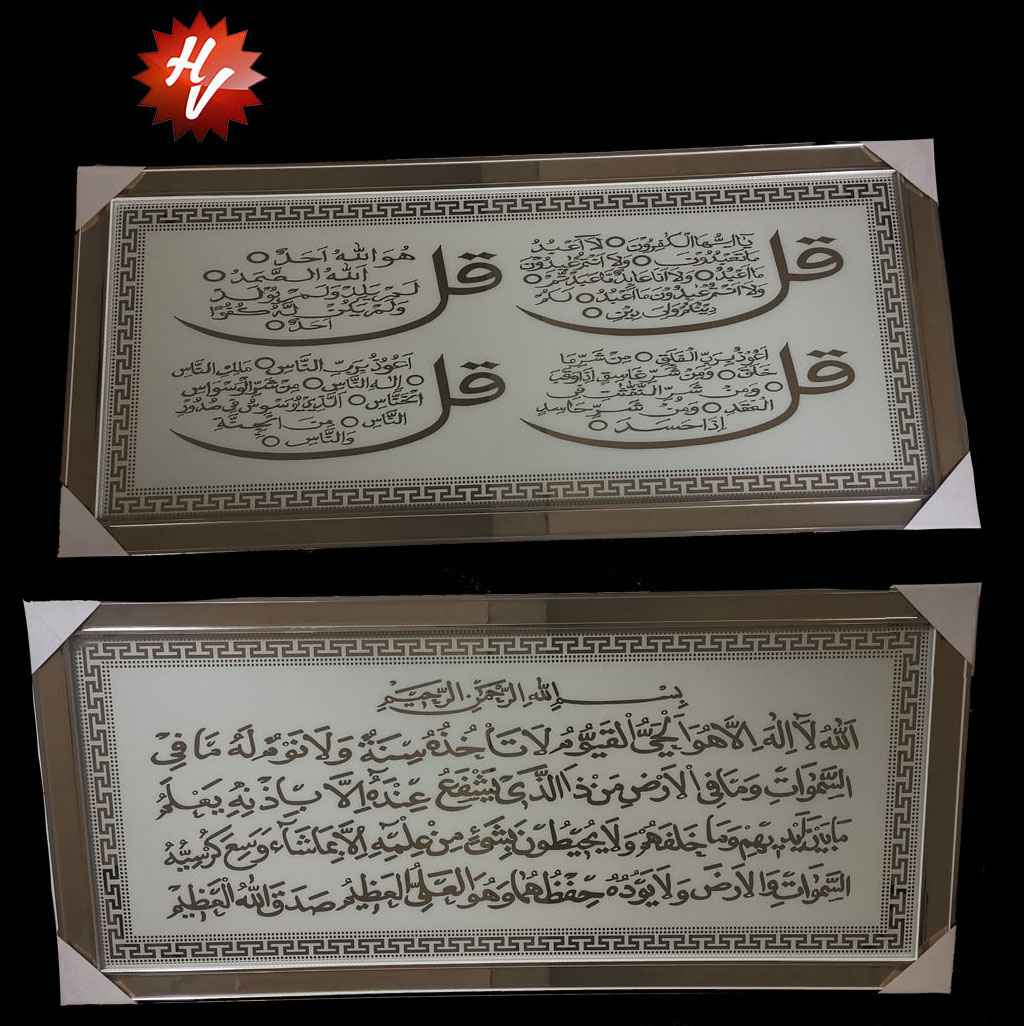 HV
قل
يٰاَيُّهَا الْكٰفِرُوْنَ ○ لَا اَعْبُدُ
مَا تَعْبُدُوْنَ ○ وَلَا اَنْتُمْ عٰبِدُوْنَ
مَا اَعْبُدُ ○ وَلَا اَنَا عَابِدٌ مَّا عَبَدْتُّمْ ○
وَلَا اَنْتُمْ عٰبِدُوْنَ مَا اَعْبُدُ ○ لَكُمْ
دِيْنُكُمْ وَلِيَ دِيْنِ ○
قل
هُوَ اللّٰهُ اَحَدٌ ○
اَللّٰهُ الصَّمَدُ ○
لَمْ يَلِدْ وَلَمْ يُوْلَدْ
وَلَمْ يَكُنْ لَّهُ كُفُوًا
اَحَدٌ ○
قل
اَعُوْذُ بِرَبِّ الْفَلَقِ ○ مِنْ شَرِّ مَا
خَلَقَ ○ وَمِنْ شَرِّ غَاسِقٍ اِذَا وَقَبَ
○ وَمِنْ شَرِّ النَّفّٰثٰتِ فِي
الْعُقَدِ ○ وَمِنْ شَرِّ حَاسِدٍ
اِذَا حَسَدَ ○
قل
اَعُوْذُ بِرَبِّ النَّاسِ ○ مَلِكِ النَّاسِ
○ اِلٰهِ النَّاسِ ○ مِنْ شَرِّ الْوَسْوَاسِ
الْخَنَّاسِ ○ الَّذِيْ يُوَسْوِسُ فِيْ صُدُوْرِ
النَّاسِ ○ مِنَ الْجِنَّةِ
وَالنَّاسِ ○
بِسْمِ اللّٰهِ الرَّحْمٰنِ الرَّحِيْمِ
اَللّٰهُ لَا اِلٰهَ اِلَّا هُوَ اَلْحَيُّ الْقَيُّوْمُ لَا تَأْخُذُهُ سِنَةٌ وَلَا نَوْمٌ لَهُ مَا فِي
السَّمٰوَاتِ وَمَا فِي الْاَرْضِ مَنْ ذَا الَّذِيْ يَشْفَعُ عِنْدَهُ اِلَّا بِاِذْنِهِ يَعْلَمُ
مَا بَيْنَ اَيْدِيْهِمْ وَمَا خَلْفَهُمْ وَلَا يُحِيْطُوْنَ بِشَيْءٍ مِنْ عِلْمِهِ اِلَّا بِمَا شَاءَ وَسِعَ كُرْسِيُّهُ
السَّمٰوَاتِ وَالْاَرْضَ وَلَا يَؤُدُهُ حِفْظُهُمَا وَهُوَ الْعَلِيُّ الْعَظِيْمُ صَدَقَ اللّٰهُ الْعَظِيْمُ